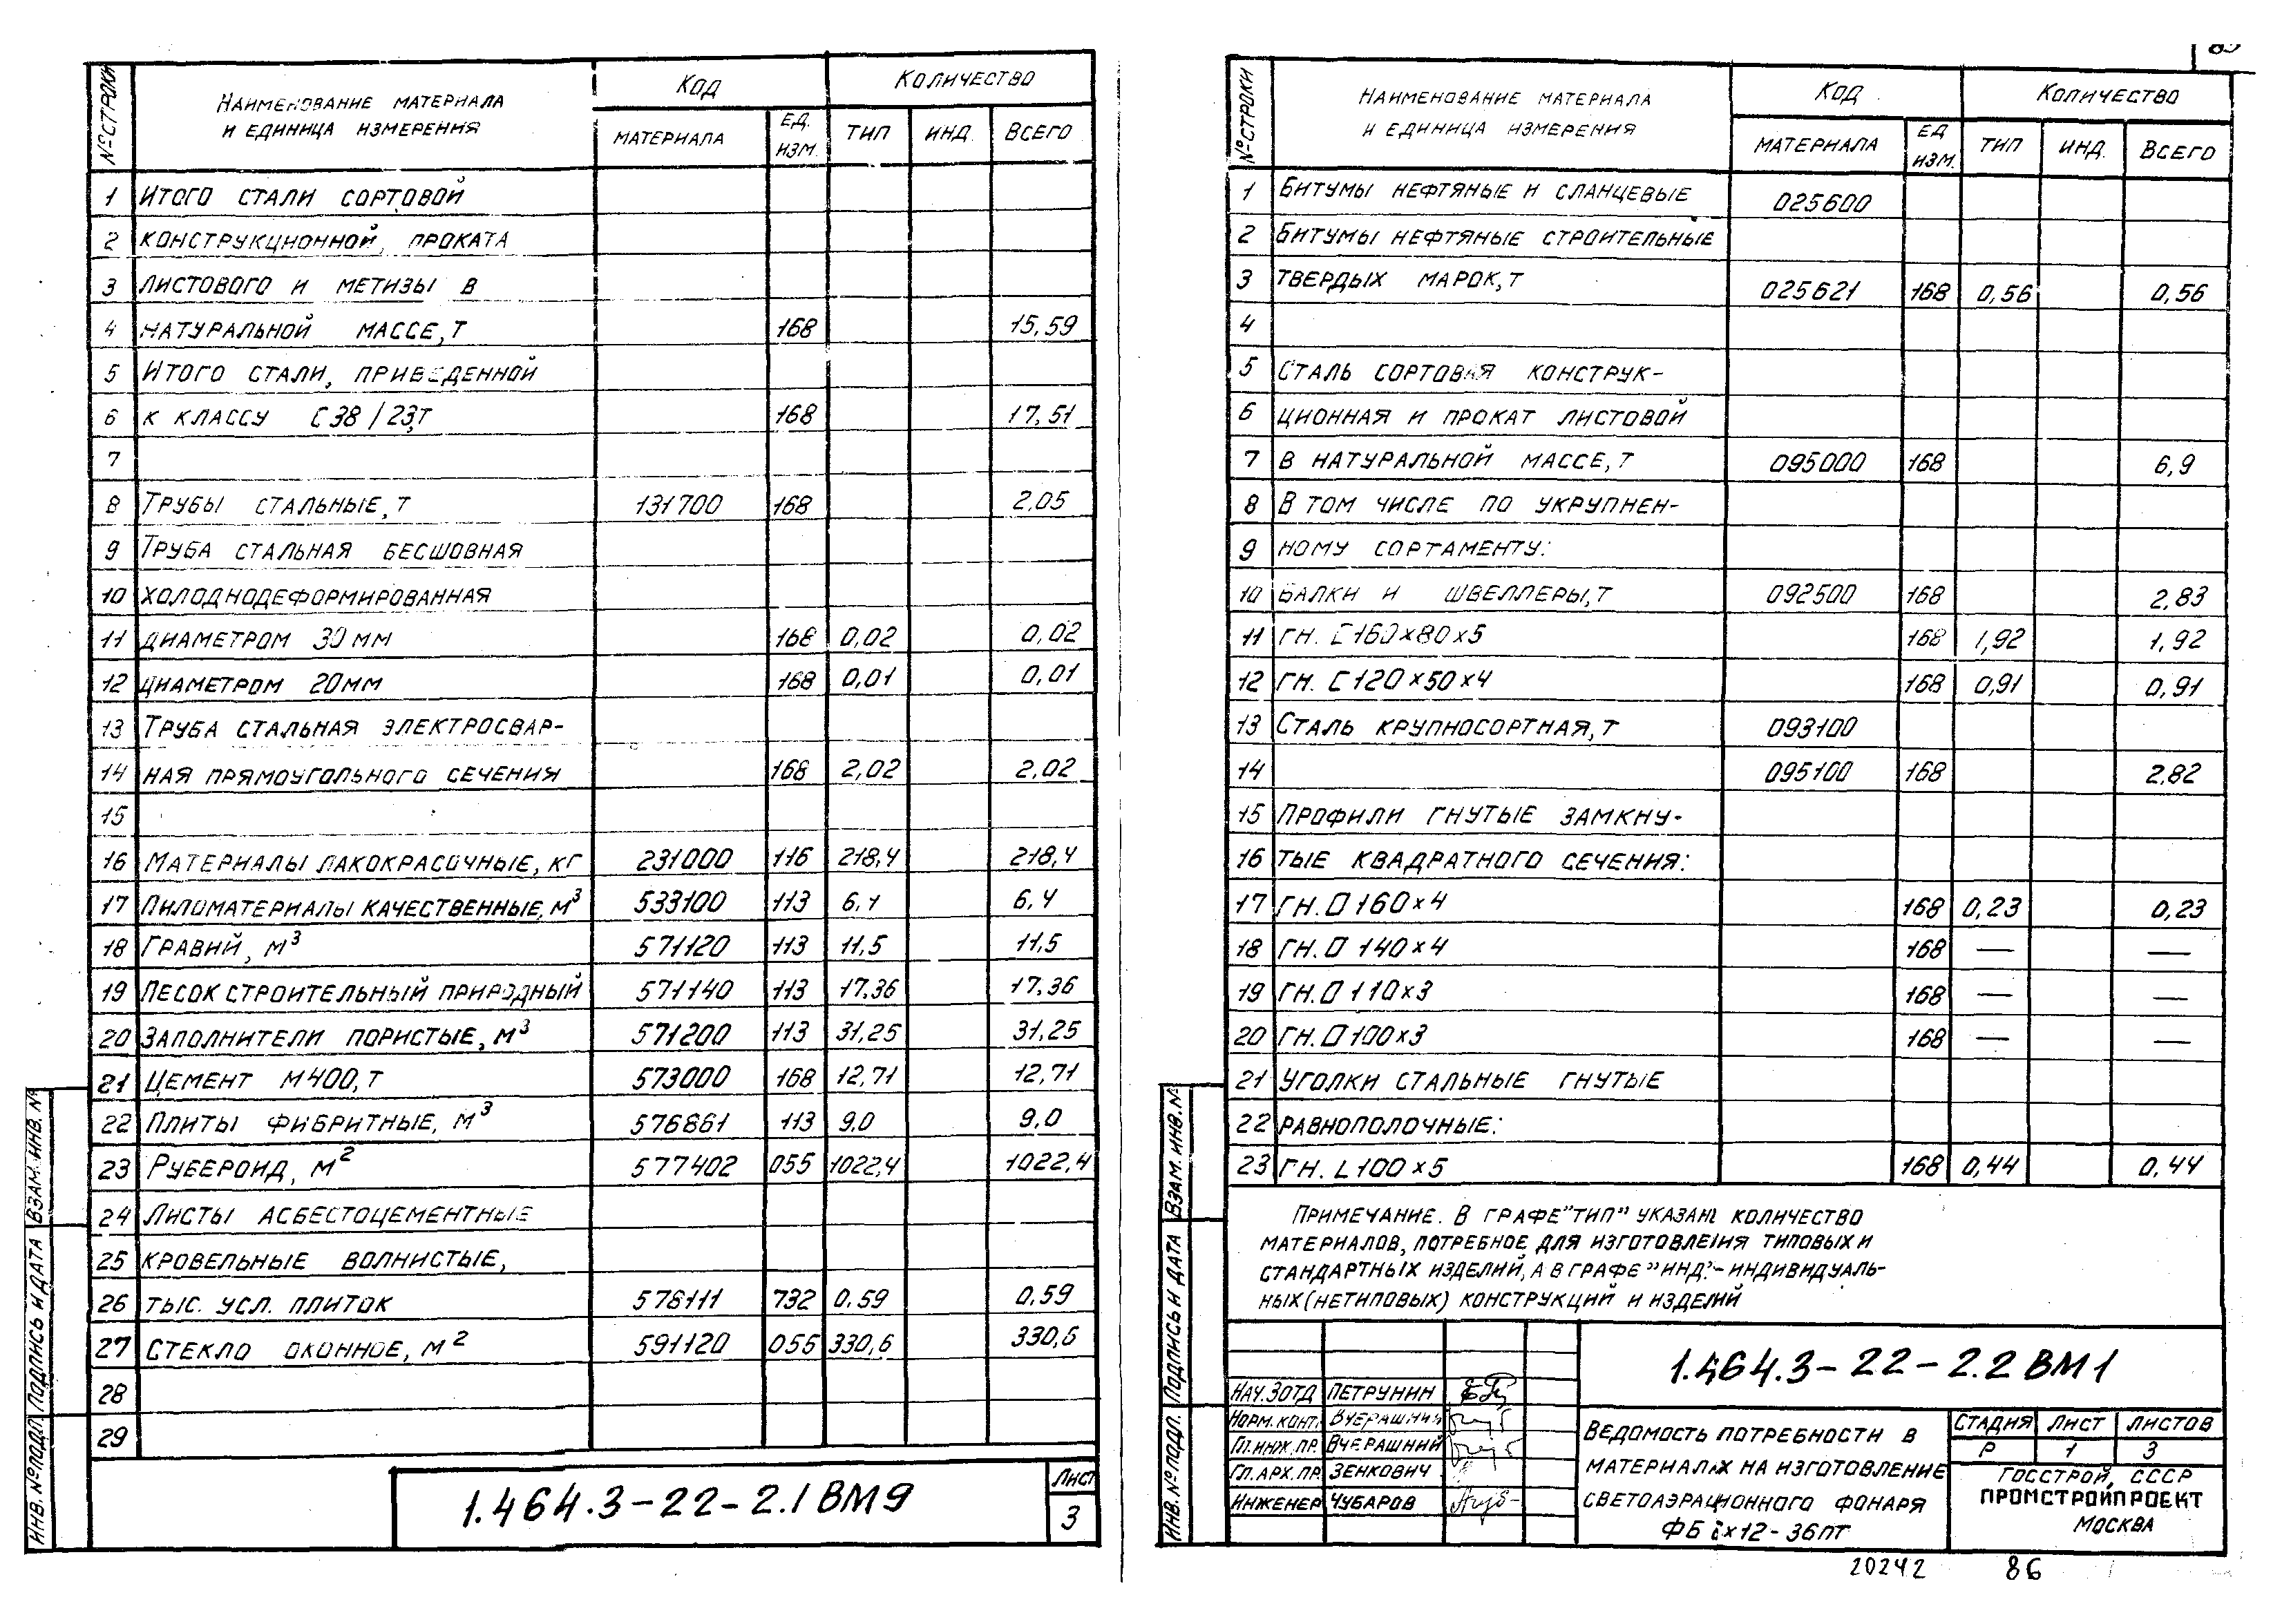 № строки | Наименование материала и единица измерения | Код | Количество
материала | ед. изм. | тип | инд. | всего
1 Итого стали сортовой
2 конструкционной, проката
3 листового и метизы в
4 натуральной массе, т 168 15,59
5 Итого стали, приведенной
6 к классу С38/23,т 168 17,51
7
8 Трубы стальные, т 131700 168 2,05
9 Труба стальная бесшовная
10 холоднодеформированная
11 диаметром 30 мм 168 0,02 0,02
12 диаметром 20мм 168 0,01 0,01
13 Труба стальная электросвар-
14 ная прямоугольного сечения 168 2,02 2,02
15
16 Материалы лакокрасочные, кг 231000 116 218,4 218,4
17 Пиломатериалы качественные, м³ 533100 113 6,4
18 Гравий, м³ 571120 113 11,5 11,5
19 Песок строительный природный 571140 113 17,36 17,36
20 Заполнители пористые, м³ 571200 113 31,25 31,25
21 Цемент М400, т 573000 168 12,71 12,71
22 Плиты фибритные, м³ 576861 113 9,0 9,0
23 Рубероид, м² 577402 055 1022,4 1022,4
24 Листы асбестоцементные
25 кровельные волнистые,
26 тыс. усл. плиток 578111 732 0,59 0,59
27 Стекло оконное, м² 591120 055 330,6 330,6
28
29
Инв. № подл. Подпись и дата Взам. инв. №
1.464.3-22-2.1 ВМ9
Лист
3
№ строки | Наименование материала и единица измерения | Код | Количество
материала | ед. изм. | тип | инд. | всего
1 Битумы нефтяные и сланцевые 025600
2 Битумы нефтяные строительные
3 твердых марок, т 025621 168 0,56 0,56
4
5 Сталь сортовая конструк-
6 ционная и прокат листовой
7 в натуральной массе, т 095000 168 6,9
8 В том числе по укрупнен-
9 ному сортаменту:
10 Балки и швеллеры, т 092500 168 2,83
11 гн. [160×80×5 168 1,92 1,92
12 гн. [120×50×4 168 0,91 0,91
13 Сталь крупносортная, т 093100
14 095100 168 2,82
15 Профили гнутые замкну-
16 тые квадратного сечения:
17 гн. □ 160×4 168 0,23 0,23
18 гн. □ 140×4 168 — —
19 гн. □ 110×3 168 — —
20 гн. □ 100×3 168 — —
21 Уголки стальные гнутые
22 равнополочные:
23 гн. L100×5 168 0,44 0,44
Примечание. В графе "тип" указано количество
материалов, потребное для изготовления типовых и
стандартных изделий, а в графе "инд."- индивидуаль-
ных (нетиповых) конструкций и изделий
Инв. № подл. Подпись и дата Взам. инв. №
1.464.3-22-2.2 ВМ1
Нач.3отд Петрунин
Норм. конт. Вчерашний
Гл. инж. пр. Вчерашний
Гл. арх. пр. Зенкович
Инженер Чубаров
Ведомость потребности в
материалах на изготовление
светоаэрационного фонаря
×12-36пт
Стадия Лист Листов
Р 1 3
Госстрой, СССР
Промстройпроект
Москва
20242 86